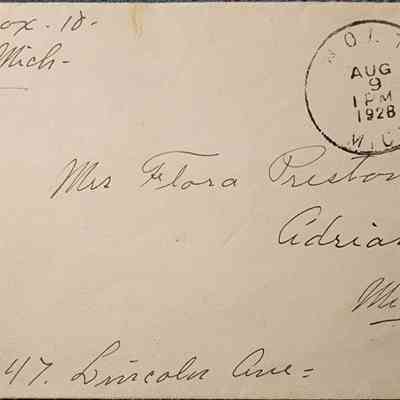 ox - 18 -
Mich -
HOLT
AUG
9
1 PM
1928
MIC
Mrs Flora Preston
Adrian
Mi
47. Lincoln Ave =